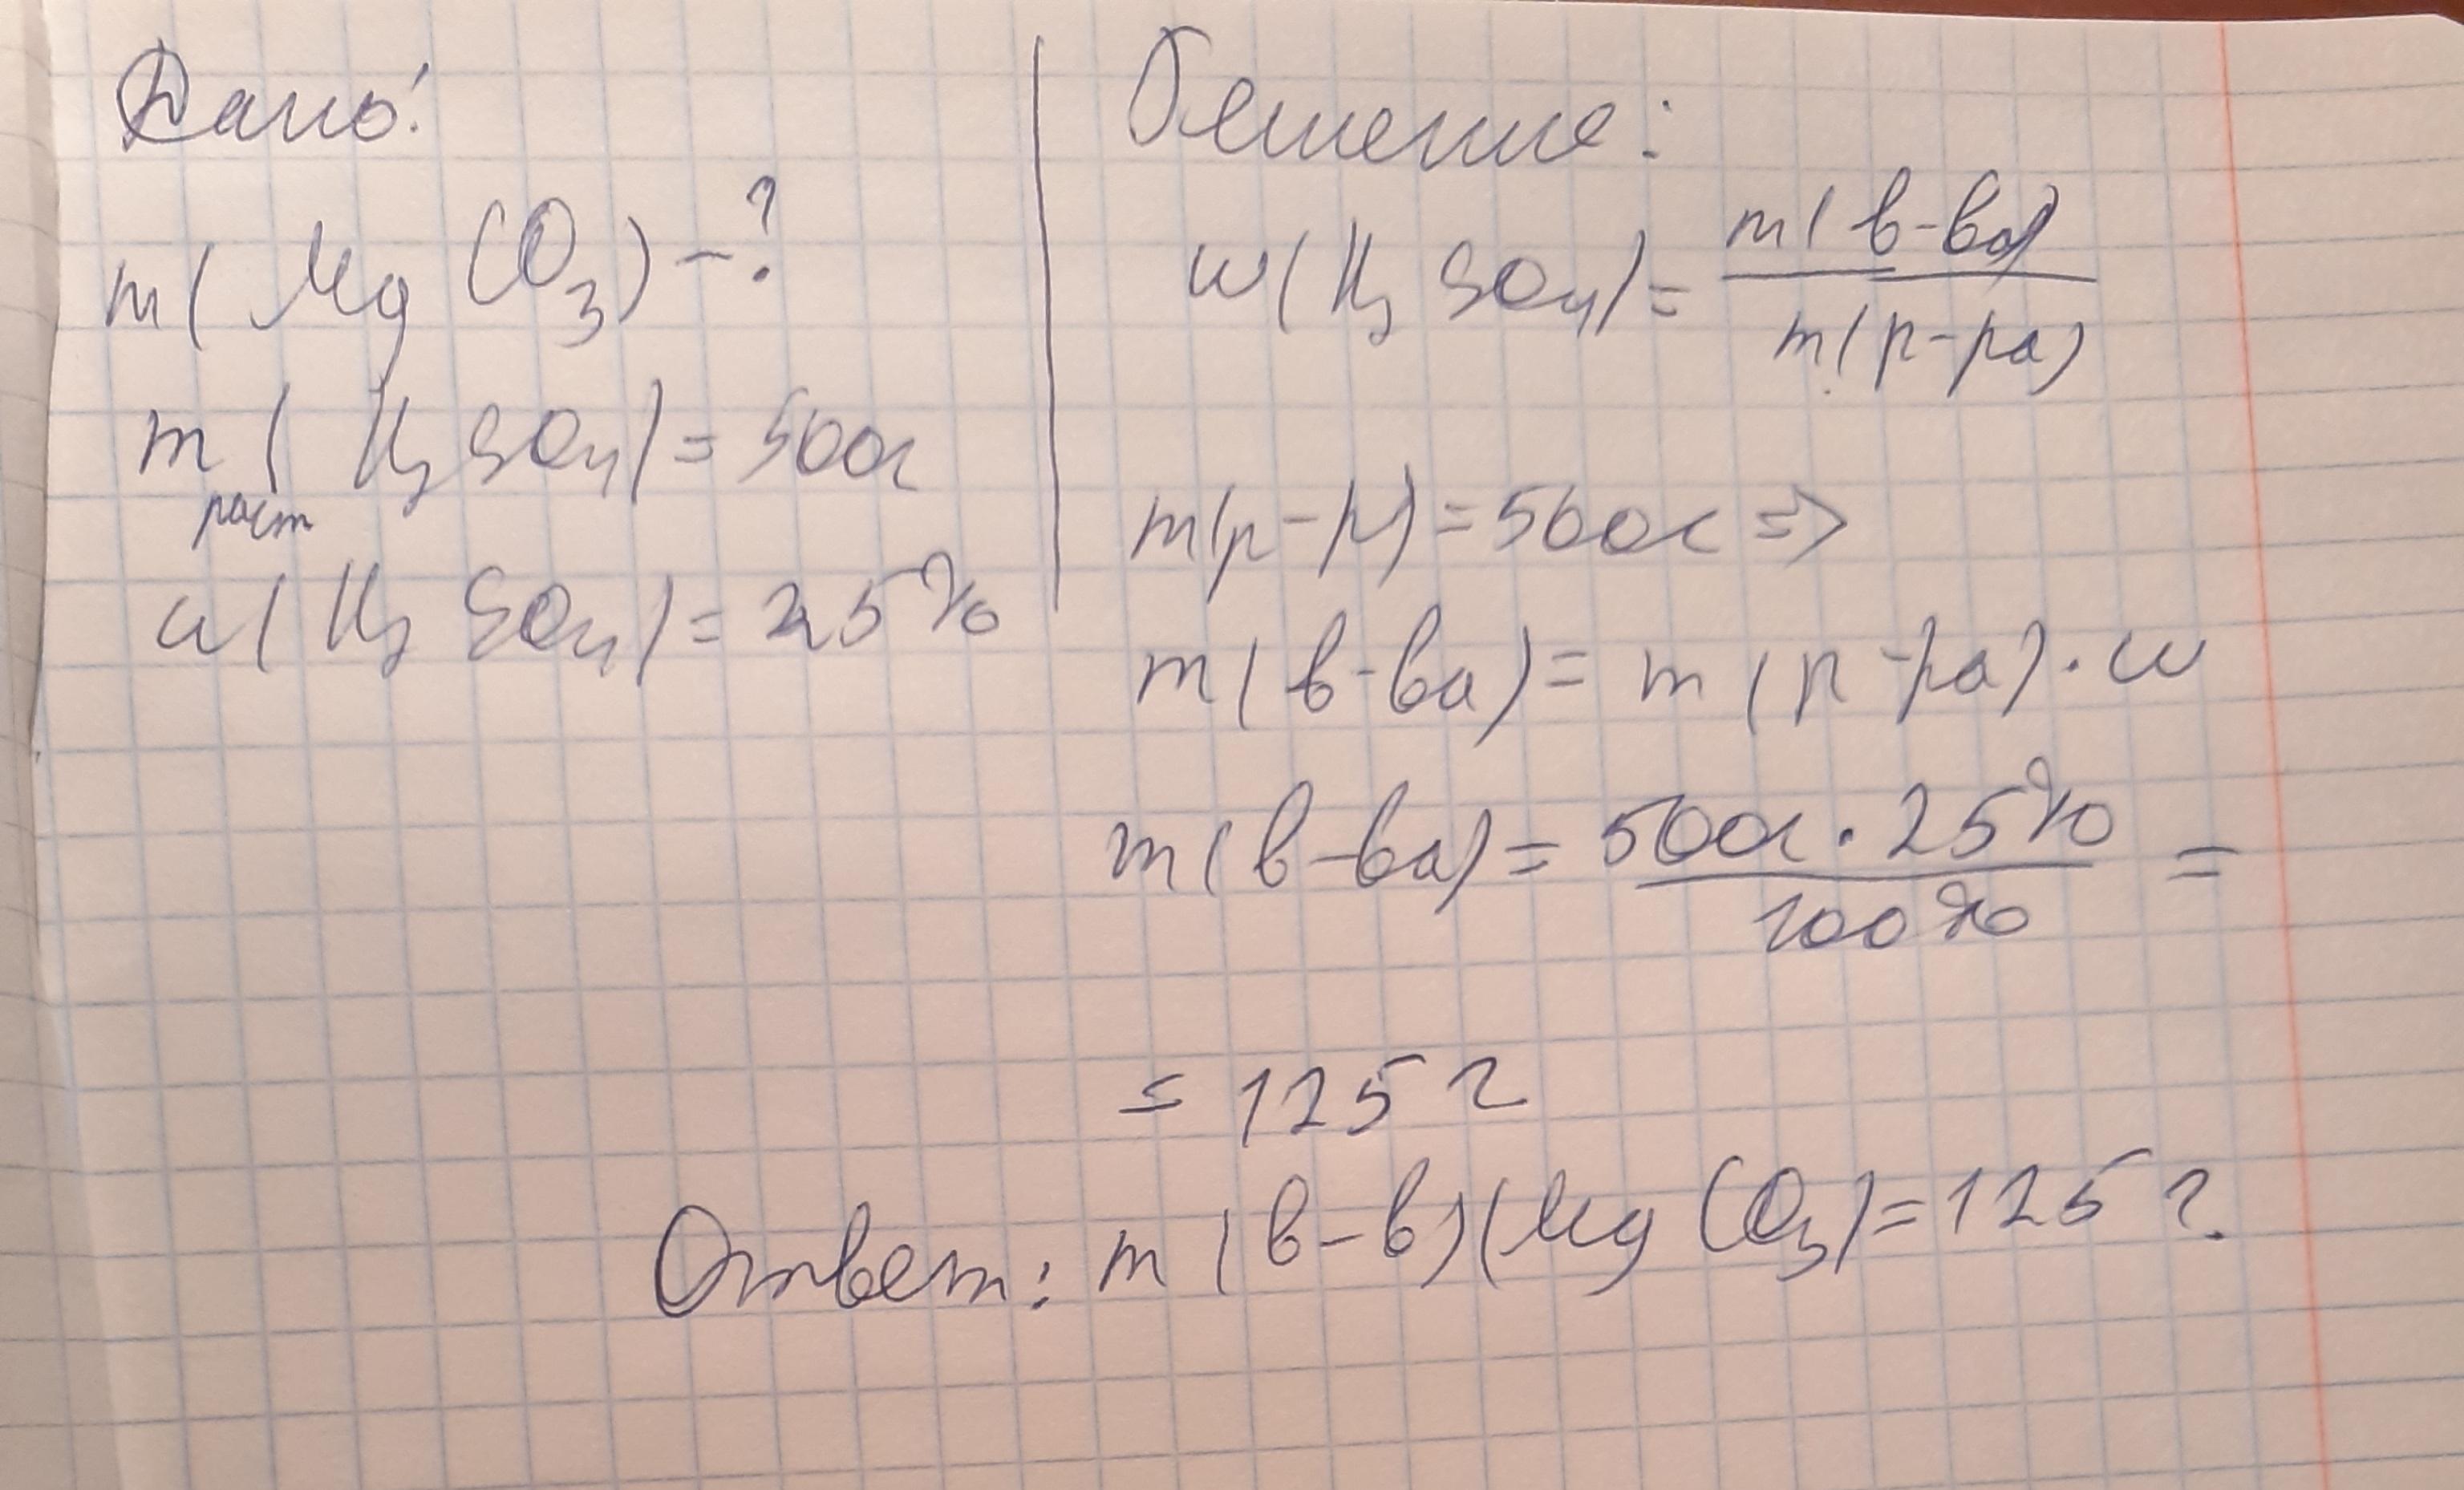 Дано:
m( MgCO₃) - ?
m раст ( H₂SO₄) = 500г
w( H₂SO₄) = 25%
Решение:
w( H₂SO₄) = m( в-ва) / m(р-ра)
m(р-р) = 500г =>
m( в-ва) = m (р-ра) · w
m( в-ва) = 500г · 25% / 100% =
= 125 г
Ответ: m (в-в)(MgCO₃) = 125 г.